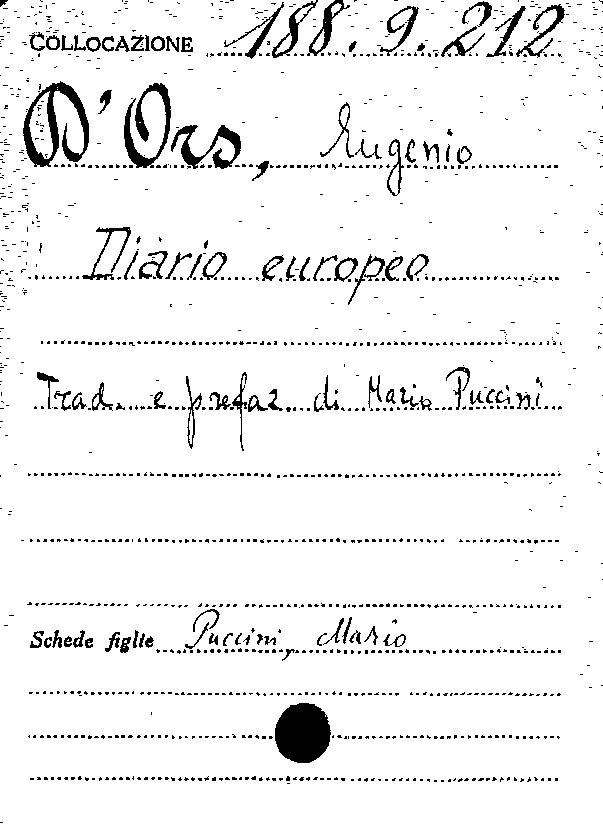 COLLOCAZIONE 188.9.212
D'Ors, Eugenio
Diario europeo
Trad. e prefaz. di Mario Puccini
Schede figlie Puccini, Mario